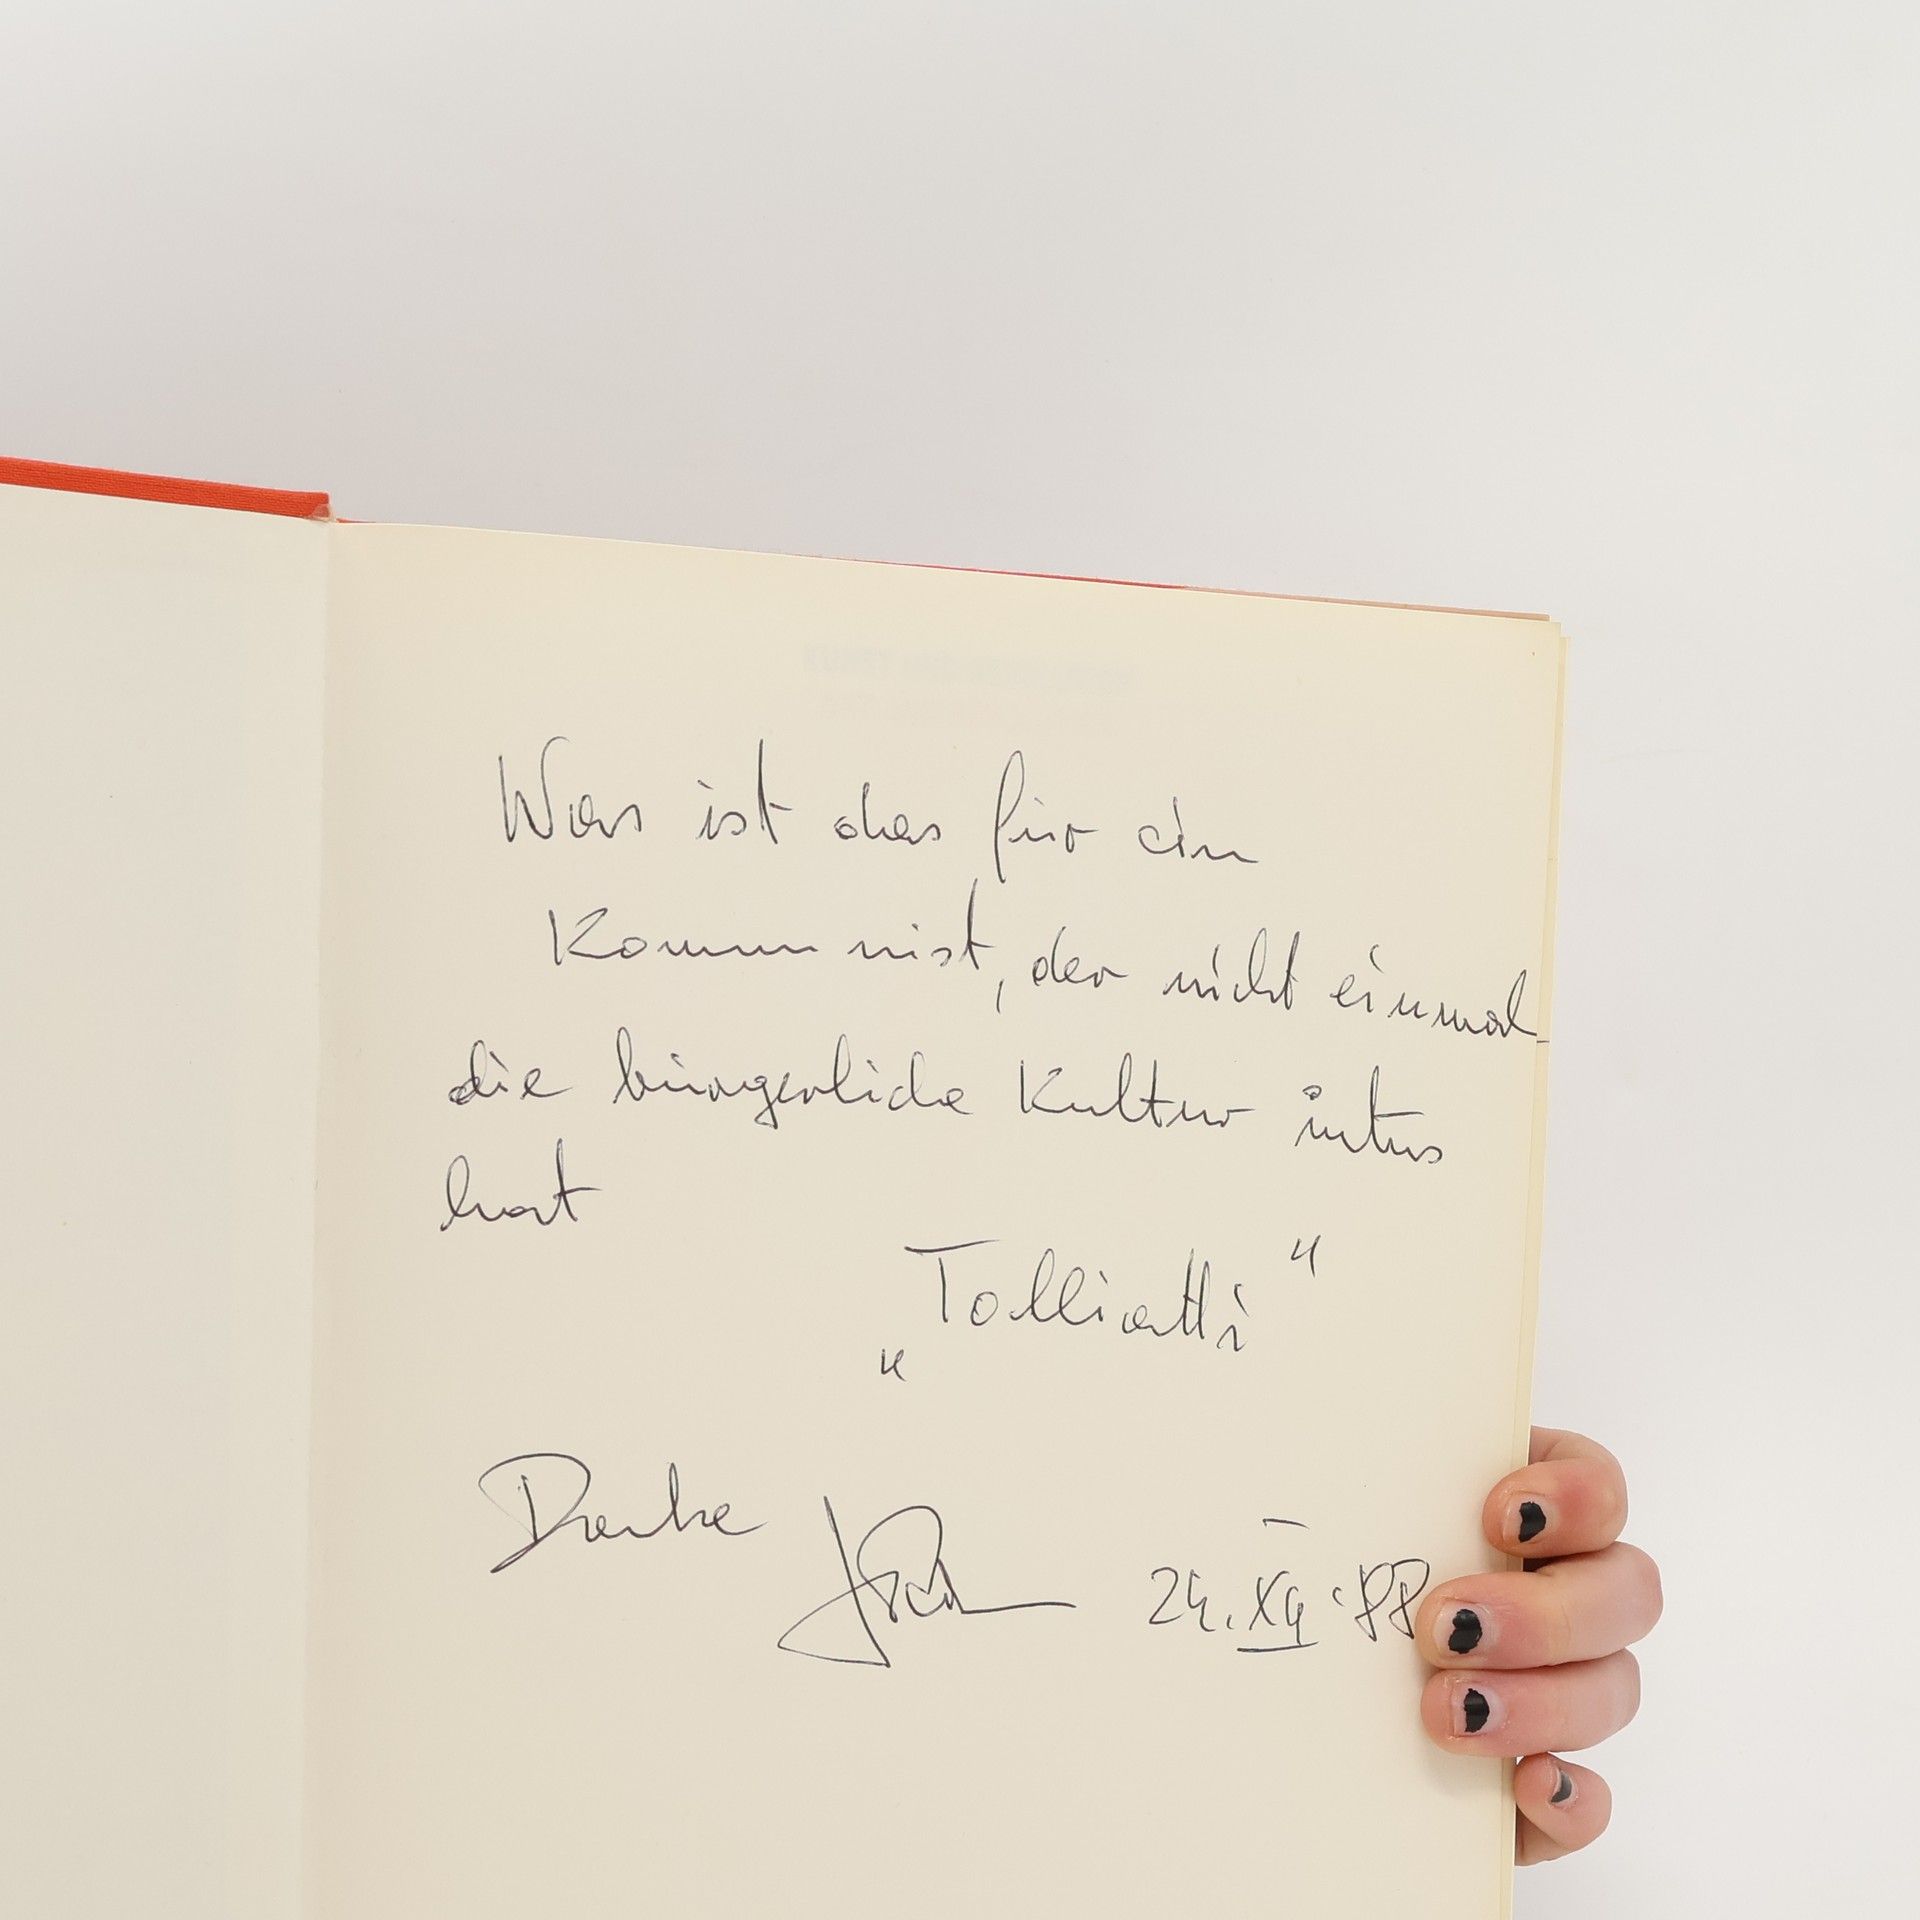 Was ist das für ein
Kommunist, der nicht einmal
die bürgerliche Kultur intus
hat
„Tolliatti“
Danke
24. XII. 88